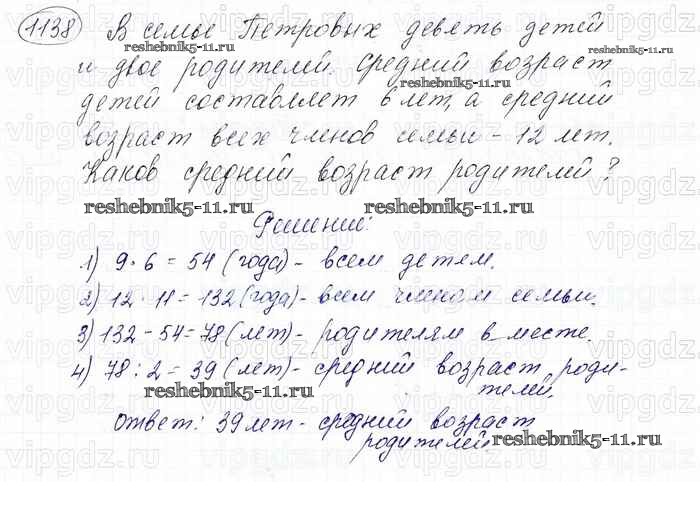 1138 В семье Петровых девять детей
reshebnik5-11.ru
и двое родителей. Средний возраст
reshebnik5-11.ru
детей составляет 6 лет, а средний
возраст всех членов семьи - 12 лет.
Каков средний возраст родителей?
reshebnik5-11.ru reshebnik5-11.ru
Решение:
1) 9 · 6 = 54 (года) - всем детям.
2) 12 · 11 = 132 (года) - всем членам семьи.
3) 132 - 54 = 78 (лет) - родителям в месте.
4) 78 : 2 = 39 (лет) - средний возраст роди-
телей.
reshebnik5-11.ru
Ответ: 39 лет - средний возраст
родителей.
reshebnik5-11.ru